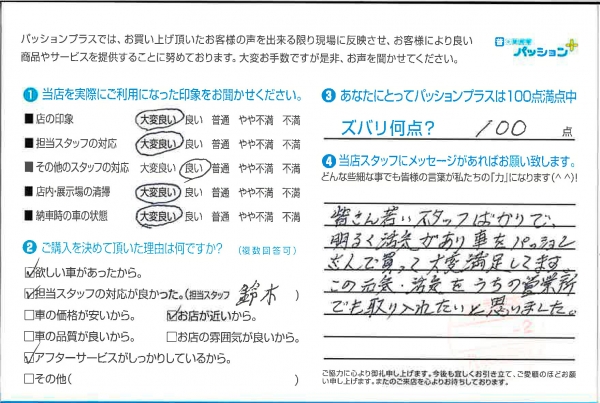 パッションプラスでは、お買い上げ頂いたお客様の声を出来る限り現場に反映させ、お客様により良い
商品やサービスを提供することに努めております。大変お手数ですが是非、お声を聞かせてください。
パッション
1 当店を実際にご利用になった印象をお聞かせください。
■店の印象 大変良い 良い 普通 やや不満 不満
■担当スタッフの対応 大変良い 良い 普通 やや不満 不満
■その他のスタッフの対応 大変良い 良い 普通 やや不満 不満
■店内・展示場の清掃 大変良い 良い 普通 やや不満 不満
■納車時の車の状態 大変良い 良い 普通 やや不満 不満
2 ご購入を決めて頂いた理由は何ですか? (複数回答可)
☑欲しい車があったから。
☑担当スタッフの対応が良かった。(担当スタッフ 鈴木 )
□車の価格が安いから。 ☑お店が近いから。
□車の品質が良いから。 □お店の雰囲気が良いから。
☑アフターサービスがしっかりしているから。
□その他( )
3 あなたにとってパッションプラスは100点満点中
ズバリ何点? 100 点
4 当店スタッフにメッセージがあればお願い致します。
どんな些細な事でも皆様の言葉が私たちの「力」になります(^ ^)!
皆さん若いスタッフばかりで、
明るく活気があり車をパッション
さんで買って大変満足してます
この元気・活気をうちの営業所
でも取り入れたいと思いました。
ご協力に心より御礼申し上げます。今後も宜しくお引き立て、ご愛顧のほどお願
い申し上げます。またのご来店を心よりお待ちしております。